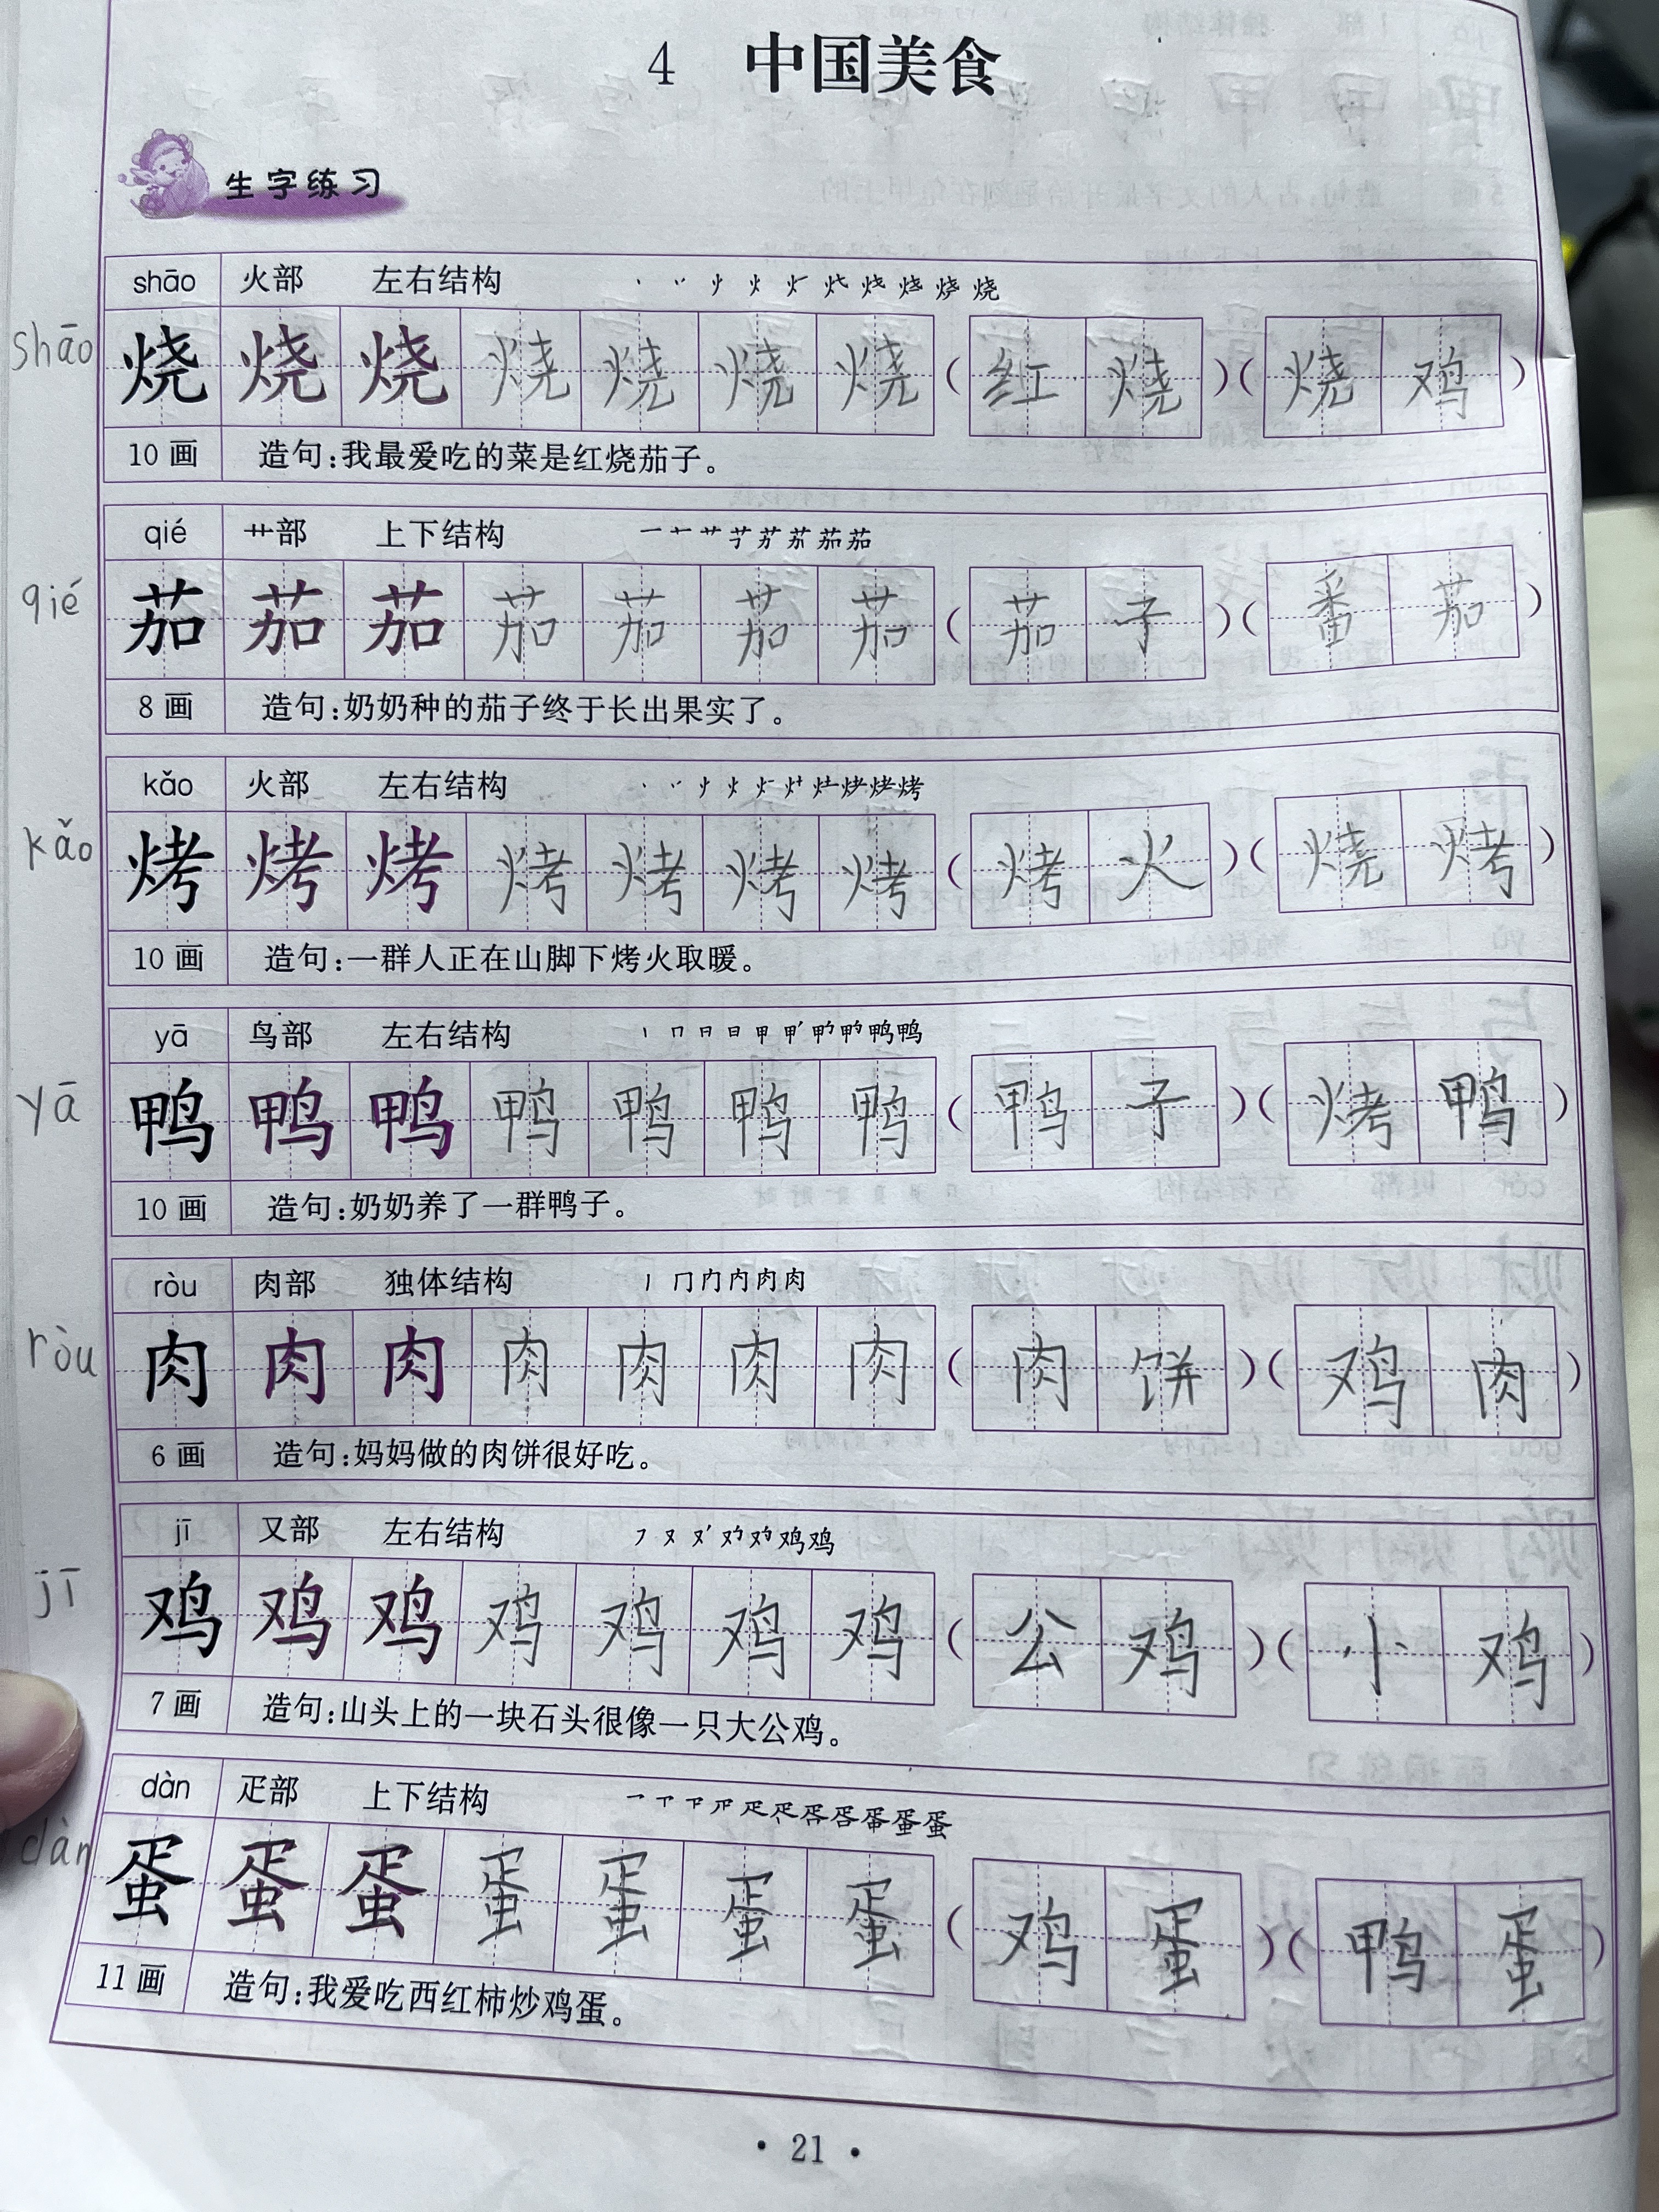 4 中国美食
生字练习
shāo 火部 左右结构
shāo 烧 烧 烧 烧 烧 烧 烧 (红烧)(烧鸡)
10画 造句:我最爱吃的菜是红烧茄子。
qié 艹部 上下结构
qié 茄 茄 茄 茄 茄 茄 茄 (茄子)(番茄)
8画 造句:奶奶种的茄子终于长出果实了。
kǎo 火部 左右结构
kǎo 烤 烤 烤 烤 烤 烤 烤 (烤火)(烧烤)
10画 造句:一群人正在山脚下烤火取暖。
yā 鸟部 左右结构
yā 鸭 鸭 鸭 鸭 鸭 鸭 鸭 (鸭子)(烤鸭)
10画 造句:奶奶养了一群鸭子。
ròu 肉部 独体结构
ròu 肉 肉 肉 肉 肉 肉 肉 (肉饼)(鸡肉)
6画 造句:妈妈做的肉饼很好吃。
jī 又部 左右结构
jī 鸡 鸡 鸡 鸡 鸡 鸡 鸡 (公鸡)(小鸡)
7画 造句:山头上的一块石头很像一只大公鸡。
dàn 疋部 上下结构
dàn 蛋 蛋 蛋 蛋 蛋 蛋 蛋 (鸡蛋)(鸭蛋)
11画 造句:我爱吃西红柿炒鸡蛋。
·21·